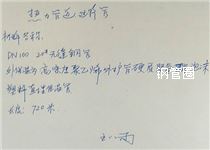 热力管道进行了
钢管圈
材料名称:
DN100 20#无缝钢管
外保温为高密度聚乙烯外护管硬质聚氨酯泡沫
塑料直埋保温管
长度:720米